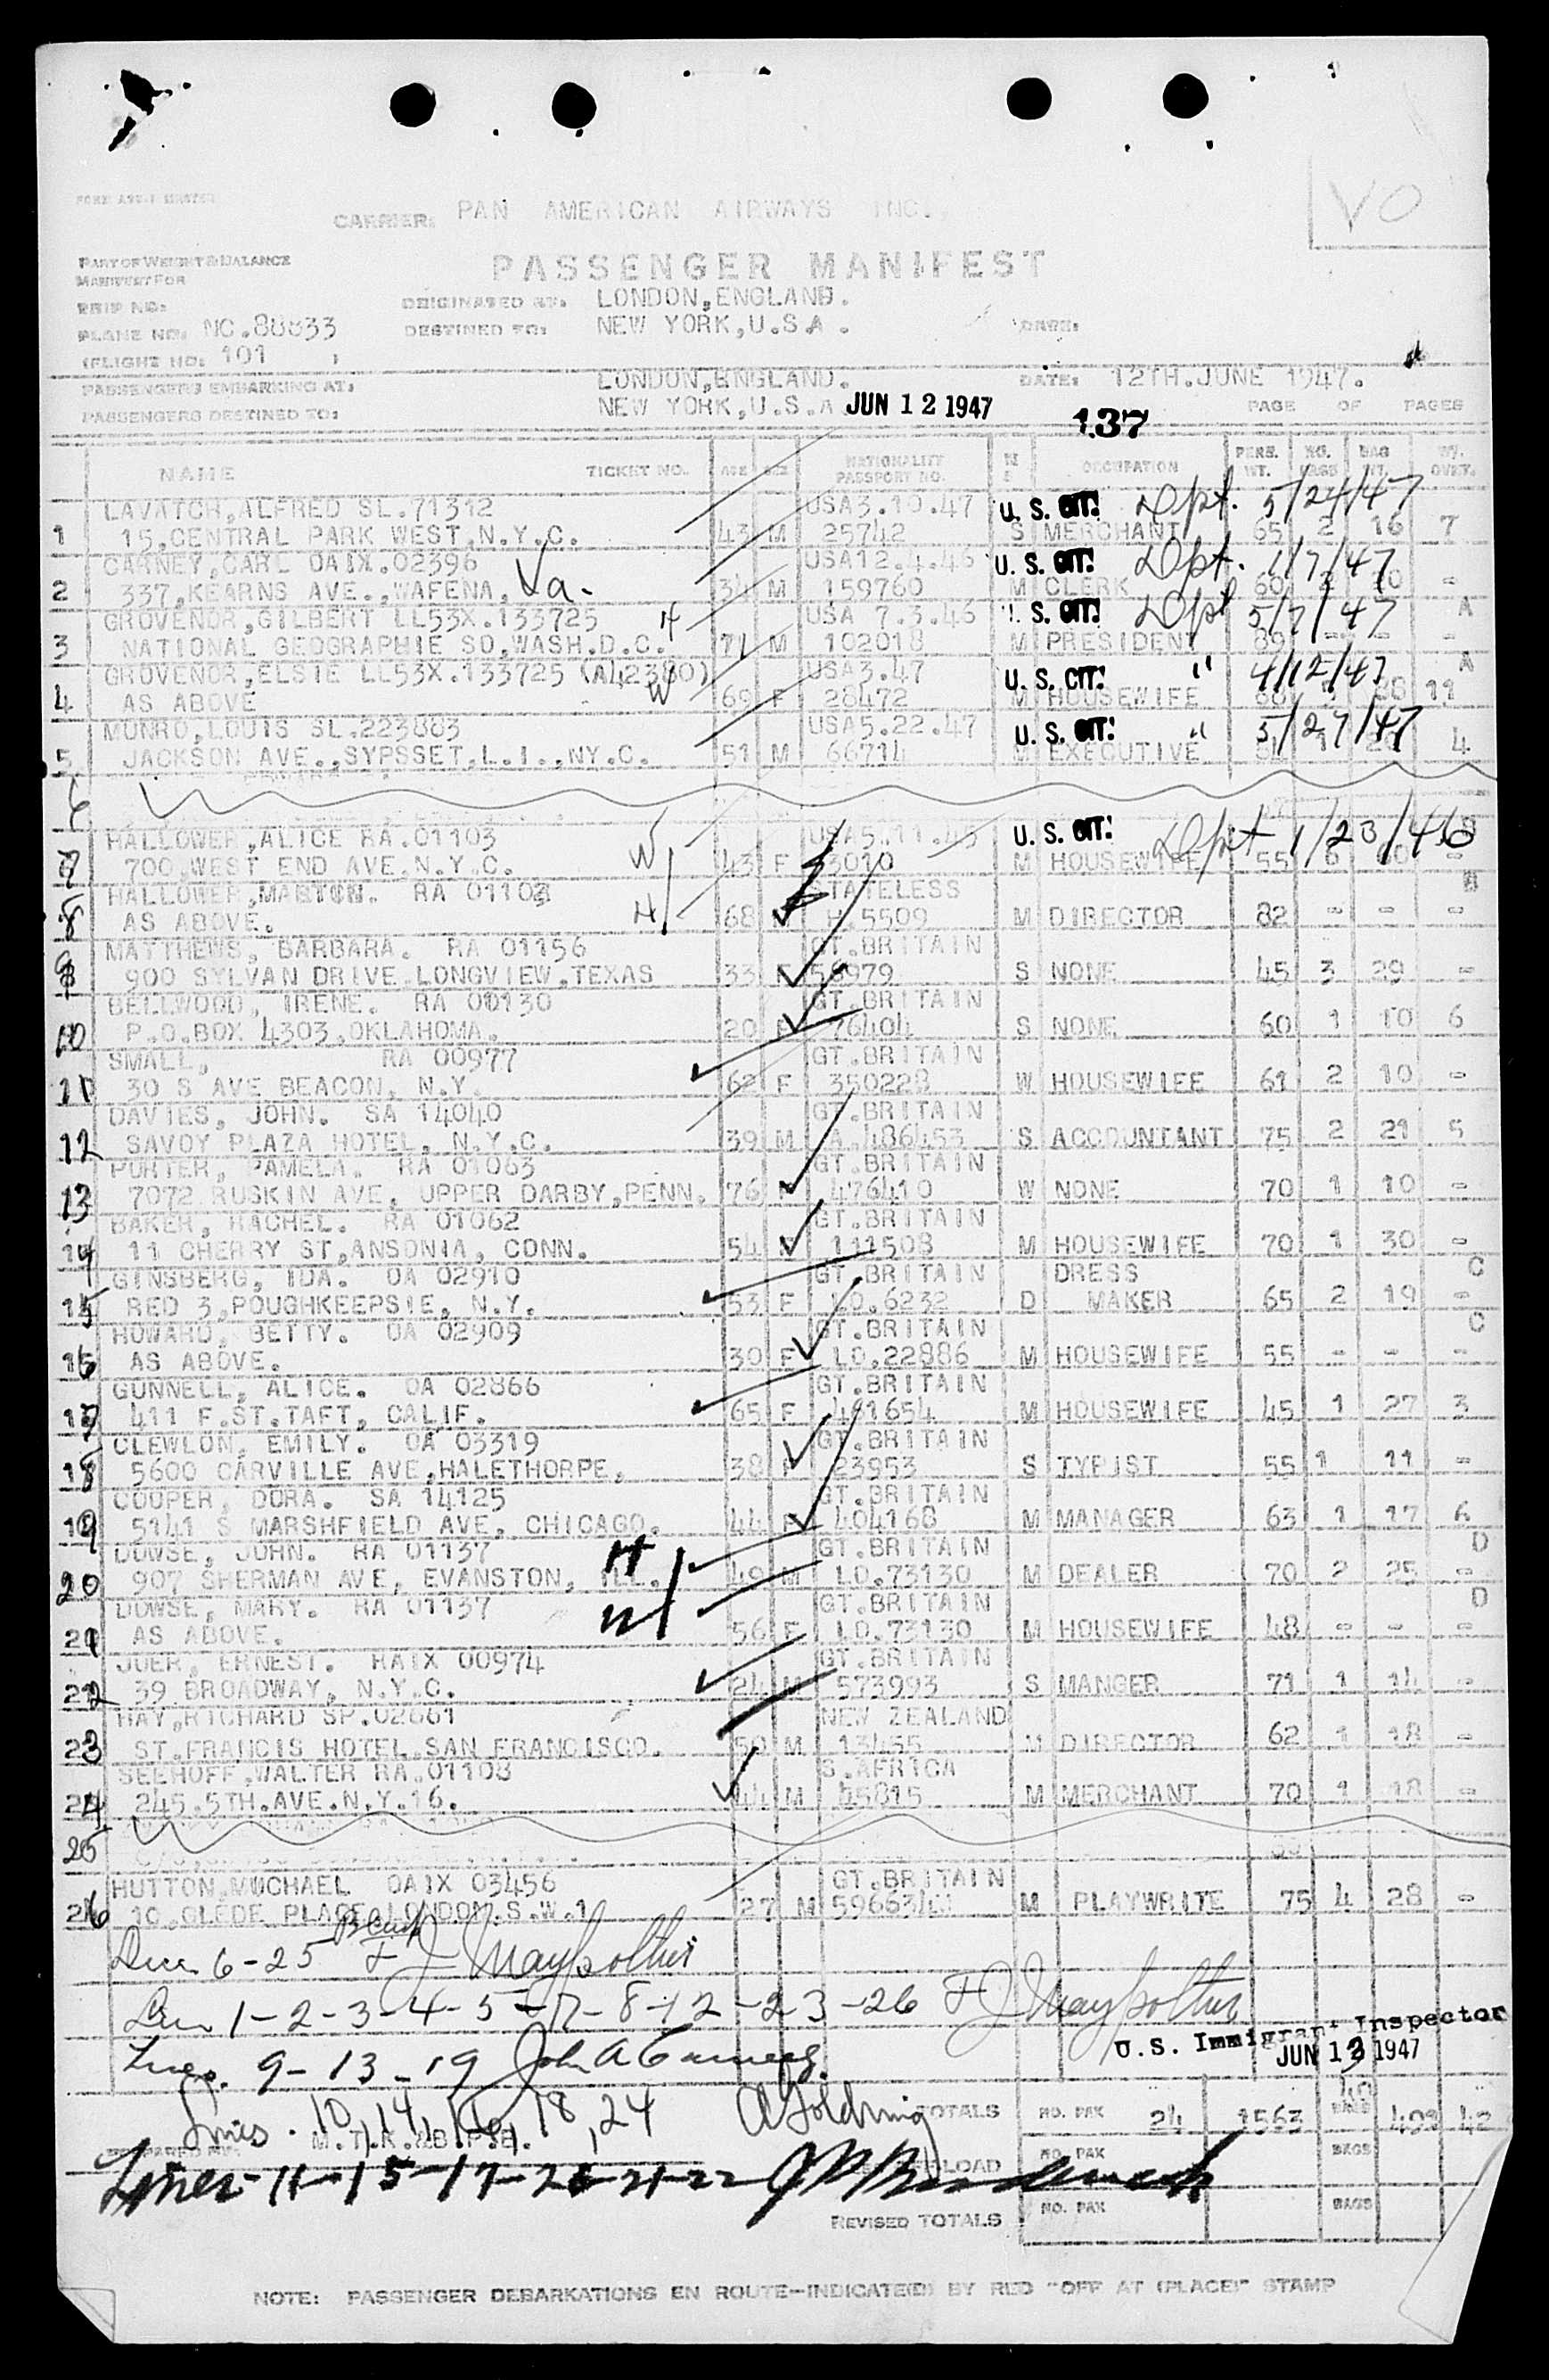 VO
CARRIER: PAN AMERICAN AIRWAYS INC.,
PART OF WEIGHT & BALANCE
MANIFEST FOR
PASSENGER MANIFEST
TRIP NO:
ORIGINATED AT: LONDON,ENGLAND.
PLANE NO: NC.88833
DESTINED TO: NEW YORK,U.S.A. DATE:
(FLIGHT NO: 101 )
PASSENGERS EMBARKING AT: LONDON,ENGLAND. DATE: 12TH.JUNE 1947.
PASSENGERS DESTINED TO: NEW YORK,U.S.A JUN 12 1947 137 PAGE OF PAGES
NAME TICKET NO. AGE SEX NATIONALITY PASSPORT NO. OCCUPATION PERS. WT. NO. BAG WT. OVWT.
LAVATCH,ALFRED SL.71312 USA3.10.47 U. S. CIT. Dept. 5/24/47
1 15,CENTRAL PARK WEST,N.Y.C. 43 M 25742 S MERCHANT 65 2 16 7
CARNEY,CARL OAIX.02396 USA12.4.46 U. S. CIT. Dept. 1/7/47
2 337,KEARNS AVE.,WAFENA, Va. 34 M 159760 M CLERK 60 -
GROVENOR,GILBERT LL53X.133725 H USA 7.3.46 U. S. CIT. Dept 5/7/47 A
3 NATIONAL GEOGRAPHIE SO,WASH.D.C. 71 M 102018 M PRESIDENT 89 - - -
GROVENOR,ELSIE LL53X.133725 (A42380) USA3.47 U. S. CIT. " 4/12/47 A
4 AS ABOVE W 69 F 28472 M HOUSEWIFE 11
MUNRO,LOUIS SL.223883 USA5.22.47 U. S. CIT. " 5/27/47
5 JACKSON AVE.,SYPSSET,L.I.,NY.C. 51 M 66714 M EXECUTIVE 4
6
HALLOWER,ALICE RA.01103 U. S. CIT. Dept 1/23/46
7 700,WEST END AVE.N.Y.C. W 43 F 3010 M HOUSEWIFE 55 6 -
HALLOWER,MARTON. RA 01103 STATELESS B
8 AS ABOVE. H 68 H.5509 M DIRECTOR 82 - - -
MATTHEWS, BARBARA. RA 01156 GT.BRITAIN
9 900 SYLVAN DRIVE LONGVIEW.TEXAS 33 F 58979 S NONE 45 3 29 -
BELLWOOD, IRENE. RA 00130 GT.BRITAIN
10 P.O.BOX 4303,OKLAHOMA. 20 F 76404 S NONE 60 1 10 6
SMALL, RA 00977 GT.BRITAIN
11 30 S AVE BEACON, N.Y. 62 F 350228 W HOUSEWIFE 61 2 10 -
DAVIES, JOHN. SA 14040 GT.BRITAIN
12 SAVOY PLAZA HOTEL, N.Y.C. 39 M A.486453 S ACCOUNTANT 75 2 21 5
PORTER, PAMELA. RA 01063 GT.BRITAIN
13 7072 RUSKIN AVE, UPPER DARBY,PENN. 76 F 476410 W NONE 70 1 10 -
BAKER, RACHEL. RA 01062 GT.BRITAIN
14 11 CHERRY ST,ANSONIA, CONN. 54 F 111508 M HOUSEWIFE 70 1 30 -
GINSBERG, IDA. OA 02910 GT.BRITAIN DRESS C
15 RED 3,POUGHKEEPSIE, N.Y. 53 F LO.6232 D MAKER 65 2 19 -
HOWARD, BETTY. OA 02909 GT.BRITAIN C
16 AS ABOVE. 30 F LO.22886 M HOUSEWIFE 55 - - -
GUNNELL, ALICE. OA 02866 GT.BRITAIN
17 411 F.ST.TAFT, CALIF. 65 F 491654 M HOUSEWIFE 45 1 27 3
CLEWLON, EMILY. OA 03319 GT.BRITAIN
18 5600 CARVILLE AVE,HALETHORPE, 38 F 23953 S TYPIST 55 1 11 -
COOPER, DORA. SA 14125 GT.BRITAIN
19 5141 S MARSHFIELD AVE, CHICAGO. 44 F 404168 M MANAGER 63 1 17 6
DOWSE, JOHN. RA 01137 H GT.BRITAIN D
20 907 SHERMAN AVE, EVANSTON, ILL. 49 M LO.73130 M DEALER 70 2 25 -
DOWSE, MARY. RA 01137 W GT.BRITAIN D
21 AS ABOVE. 56 F LO.73130 M HOUSEWIFE 48 - - -
JUER, ERNEST. RAIX 00974 GT.BRITAIN
22 39 BROADWAY, N.Y.C. 24 M 573993 S MANGER 71 1 14 -
HAY,RICHARD SP.02661 NEW ZEALAND
23 ST.FRANCIS HOTEL.SAN FRANCISCO. 50 M 13455 M DIRECTOR 62 1 18 -
SEEHOFF,WALTER RA.01108 S.AFRICA
24 245.5TH.AVE.N.Y.16. 44 M 55815 M MERCHANT 70 1 18 -
25
HUTTON,MUCHAEL OAIX 03456 GT.BRITAIN
26 10,GLEDE PLACE,LONDON.S.W.1 27 M M PLAYWRITE 75 4 28 -
Lines 6-25
Lines 1-2-3-4-5-7-8-12-23-26
U.S. Immigrant Inspector
JUN 12 1947
Lines. 9-13-19
Lines. 10, 14, 16, 18, 24
TOTALS NO. PAX 24 1563 499 42
NO. PAX BAGS
Lines-11-15-17-20-21-22
REVISED TOTALS NO. PAX BAGS
NOTE: PASSENGER DEBARKATIONS EN ROUTE-INDICATE(D) BY RED "OFF AT (PLACE)" STAMP